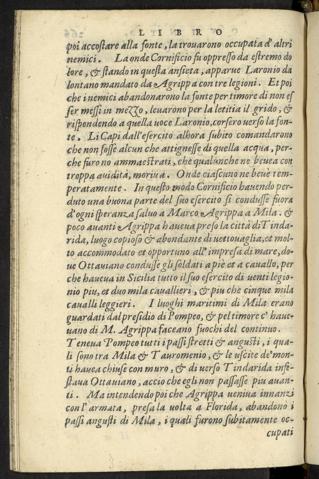 LIBRO
poi accostare alla fonte, la trouarono occupata d' altri
nemici. La onde Cornificio fu oppresso da estremo do
lore, & stando in questa ansieta, apparue Laronio da
lontano mandato da Agrippa con tre legioni. Et poi
che i nemici abandonarono la fonte per timore di non es
ser messi in mezzo, leuarono per la letitia il grido, &
rispondendo a quella uoce Laronio, corsero verso la fon-
te. Li Capi dall'esercito alhora subito comandarono
che non fosse alcun che attignesse di quella acqua, per-
che furono ammaestrati, che qualunche ne beuea con
troppa auidità, moriua. Onde ciascuno ne beuè tem-
peratamente. In questo modo Cornificio hauendo per-
duto una buona parte del suo esercito si condusse fuora
d'ogni speranza saluo a Marco Agrippa a Mila. &
poco auanti Agrippa haueua preso la città di Tinda-
rida, luogo copioso & abondante di uettouaglia, et mol-
to accommodato et opportuno all' impresa di mare, do-
ue Ottauiano condusse gli soldati a piè et a cauallo, per
che haueua in Sicilia tutto il suo esercito di uenti legio-
nio piu, et duo mila cauallieri, & piu che cinque mila
caualli leggieri. I luoghi maritimi di Mila erano
guardati dal presidio di Pompeo, & pel timore c' haue-
uano di M. Agrippa faceano fuochi del continuo.
Teneua Pompeo tutti i passi stretti & angusti, i qua-
li sono tra Mila & Tauromenio, & le uscite de'mon-
ti hauea chiuse con muro, & di uerso Tindarida infe-
staua Ottauiano, accio che egli non passasse piu auan-
ti. Ma intendendo poi che Agrippa ueniua innanzi
con l'armata, presa la uolta a Florida, abandonò i
passi angusti di Mila, i quali furono subitamente oc-
cupati